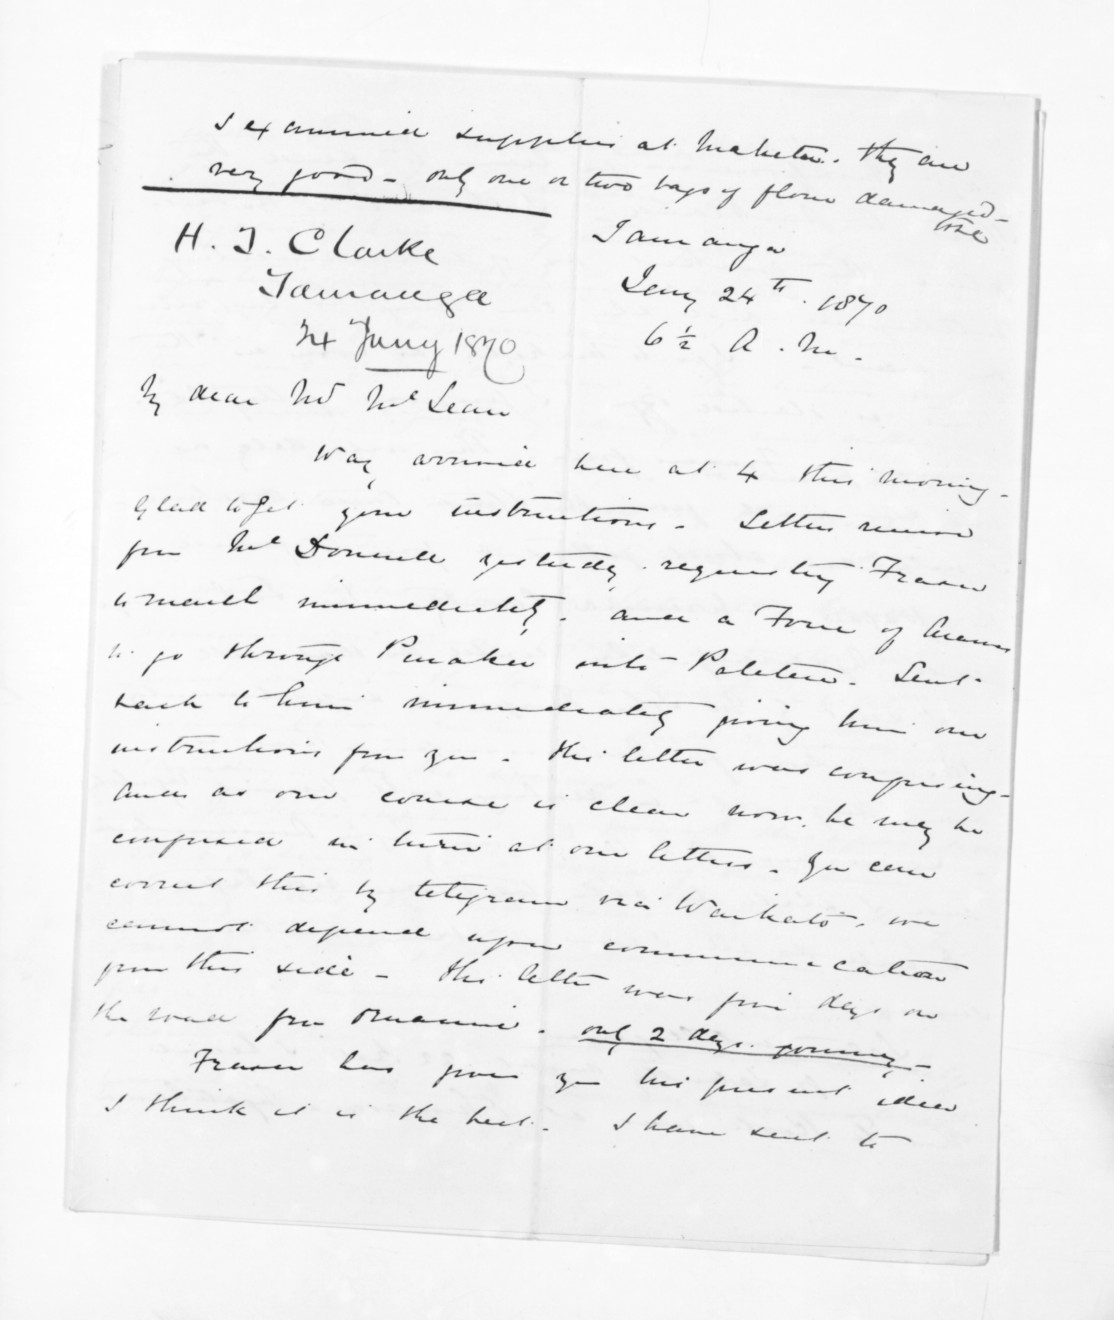 I examined supplies at Maketu. they are
very good - only one or two bags of flour damaged -
H. T. Clarke
Tauranga
24 Jany 1870
Tauranga
Jany 24th. 1870
6½ A.M.
My dear Mr McLean
Way arrived here at 4 this morning -
glad to get your instructions - Letter received
from McDonnell yesterday requesting Fraser
to march immediately. and a Force of Arawas
to go through Puraku into Patetere. Sent
back to him immediately giving him our
instructions from you - His letter was confusing -
and as our course is clear now. he may be
confused in turn at our letters. You can
correct this by telegram via Waikato. we
cannot depend upon communication
from this side - His letter was five days on
the road from Omanui. only 2 days journey -
Fraser has given you his present ideas
I think it is the best. I have sent to